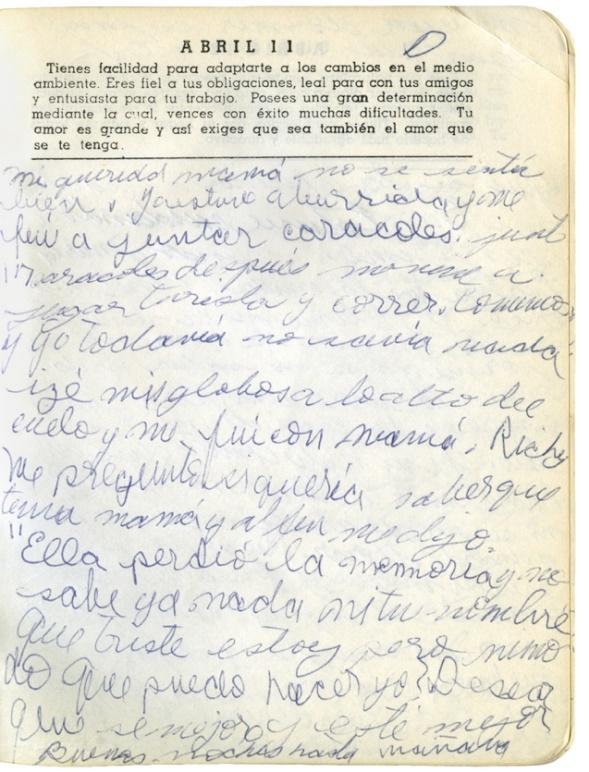 ABRIL 11
Tienes facilidad para adaptarte a los cambios en el medio
ambiente. Eres fiel a tus obligaciones, leal para con tus amigos
y entusiasta para tu trabajo. Posees una gran determinación
mediante la cual, vences con éxito muchas dificultades. Tu
amor es grande y así exiges que sea también el amor que
se te tenga.
mi querida mamá no se sentía
bien. y estuve aburrida y me
fui a juntar caracoles. junté
17 caracoles después me vine a
jugar y correr. Comimos
y yo todavía no savía nada
izé mis globos a lo alto del
cielo y me fui con mamá, Richy
me preguntó si quería saber que
tenía mamá y al fin me dijo.
"Ella perdió la memoria y no
sabe ya nada ni tu nombre
que triste estoy pero
lo que puedo hacer yo? Desear
que se mejore y esté mejor
Buenas noches hasta mañana